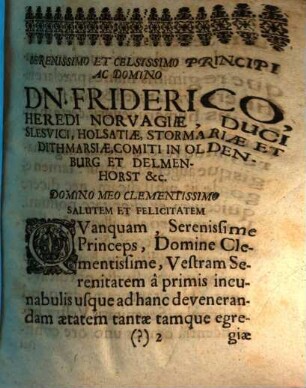 SERENISSIMO ET CELSISSIMO PRINCIPI
AC DOMINO
DN. FRIDERICO,
HEREDI NORVAGIÆ, DUCI
SLESVICI, HOLSATIÆ, STORMARIÆ ET
DITHMARSIÆ, COMITI IN OLDEN-
BURG ET DELMEN-
HORST &c.
DOMINO MEO CLEMENTISSIMO
SALUTEM ET FELICITATEM
QVanquam, Serenissime
Princeps, Domine Cle-
mentissime, Vestram Se-
renitatem â primis incu-
nabulis usque ad hanc deveneran-
dam ætatem tantæ tamque egre-
(?) 2 giæ